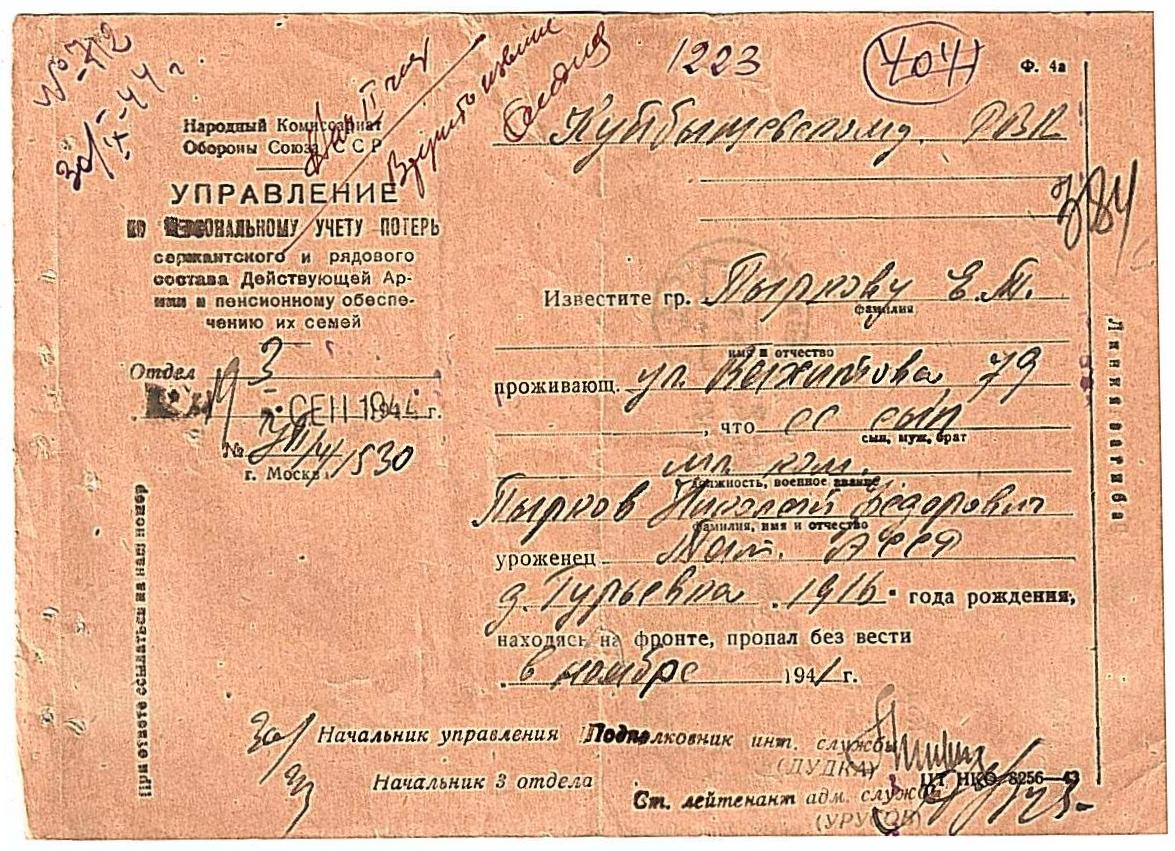 № 72
30/IX-44 г
1223
404
Ф. 4а
Народный Комиссариат
Обороны Союза ССР
УПРАВЛЕНИЕ
ПО ПЕРСОНАЛЬНОМУ УЧЕТУ ПОТЕРЬ
сержантского и рядового
состава Действующей Ар-
мии и пенсионному обеспе-
чению их семей
Отдел 3
СЕН 1944 г.
№ 1530
г. Москва
При ответе ссылаться на наш номер
Куйбышевскому РВК
384
Известите гр. Пыркову Е.Т.
фамилия
имя и отчество
проживающ. ул. Вахитова 79
, что ее сын
сын, муж, брат
мл. ком.
должность, военное звание
Пырков Николай Федорович
фамилия, имя и отчество
уроженец Тат. АССР
д. Гурьевка 1916 года рождения,
находясь на фронте, пропал без вести
6 ноября 1941 г.
Линия загиба
Начальник управления Подполковник инт. службы
(ДУДКА)
Начальник 3 отдела
Ст. лейтенант адм. службы
(УРУСОВ)
ЦТ НКО 8256—43